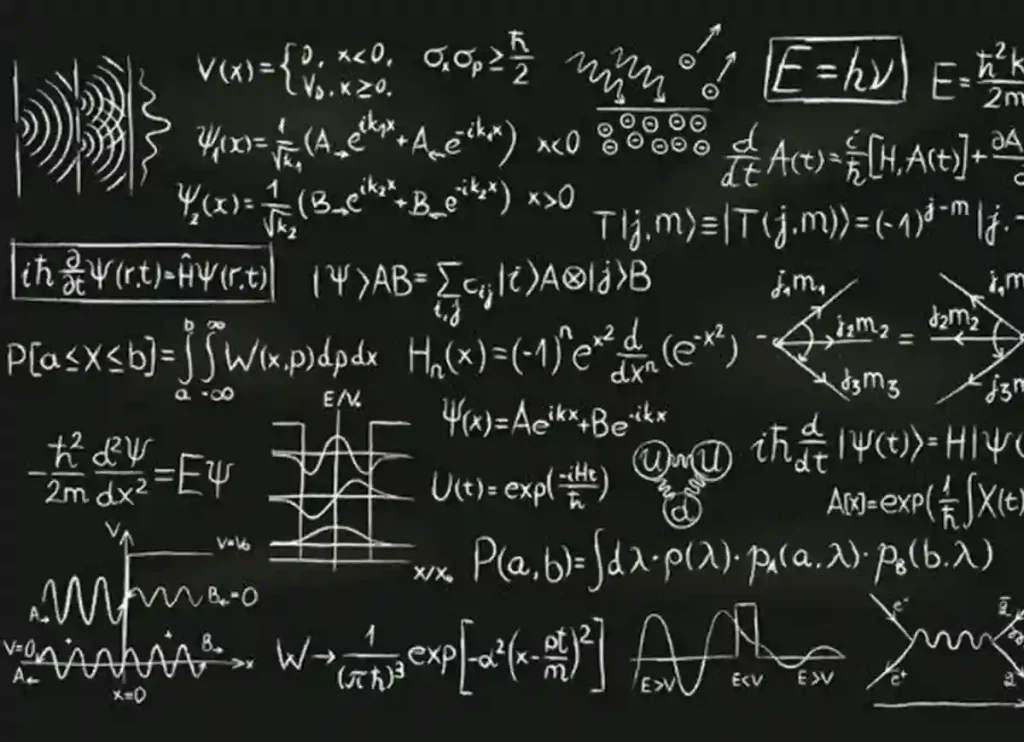 V(x)={0, x<0. V₀, x≥0.
σₓσₚ≥ħ/2
E=hν
E=ħ²k/2m
Ψ₁(x)=1/√k₁(A→e^{ik₁x}+A←e^{-ik₁x}) x<0
d/dt A(t)=i/ħ[H,A(t)]+∂A/
Ψ₂(x)=1/√k₂(B→e^{ik₂x}+B←e^{-ik₂x}) x>0
T|j,m⟩≡|T(j,m)⟩=(-1)^{j-m}|j.-
iħ∂/∂t Ψ(r,t)=ĤΨ(r,t)
|Ψ⟩AB=∑_{i,j} c_{ij}|i⟩A⊗|j⟩B
j₁m₁
j₂m₂
j₃m₃
=
j₁m
j₂m₂
j₃m
P[a≤X≤b]=∫_a^b∫_{-∞}^{∞}W(x,p)dpdx
Hₙ(x)=(-1)ⁿe^{x²} d/dxⁿ(e^{-x²})
E/V₀
Ψ(x)=Ae^{ikx}+Be^{-ikx}
-ħ²/2m d²Ψ/dx²=EΨ
U U
d
iħ d/dt|Ψ(t)⟩=H|Ψ(
U(t)=exp(-iHt/ħ)
A[x]=exp(1/ħ∫X(t)
V
V=V₀
x/x₀
P(a,b)=∫dλ·ρ(λ)·p_A(a.λ)·p_B(b.λ)
A→
B←=0
V=0
A←
B→
x
x=0
W→1/(πħ)³ exp[-α²(x-pt/m)²]
E>V E<V E>V
e⁻
e⁺